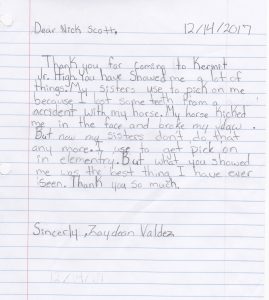 Dear Nick Scott,   12/14/2017
Thank you for coming to Kermit
Jr. High. You have showed me a lot of
things. My sisters use to pick on me
because I lost some teeth from a
accident with my horse. My horse kicked
me in the face and broke my
But now my sisters don't do that
any more. I use to get pick on
in elementry. But what you showed
me was the best thing I have ever
seen. Thank you so much.
Sincerly, Zaydean Valdez